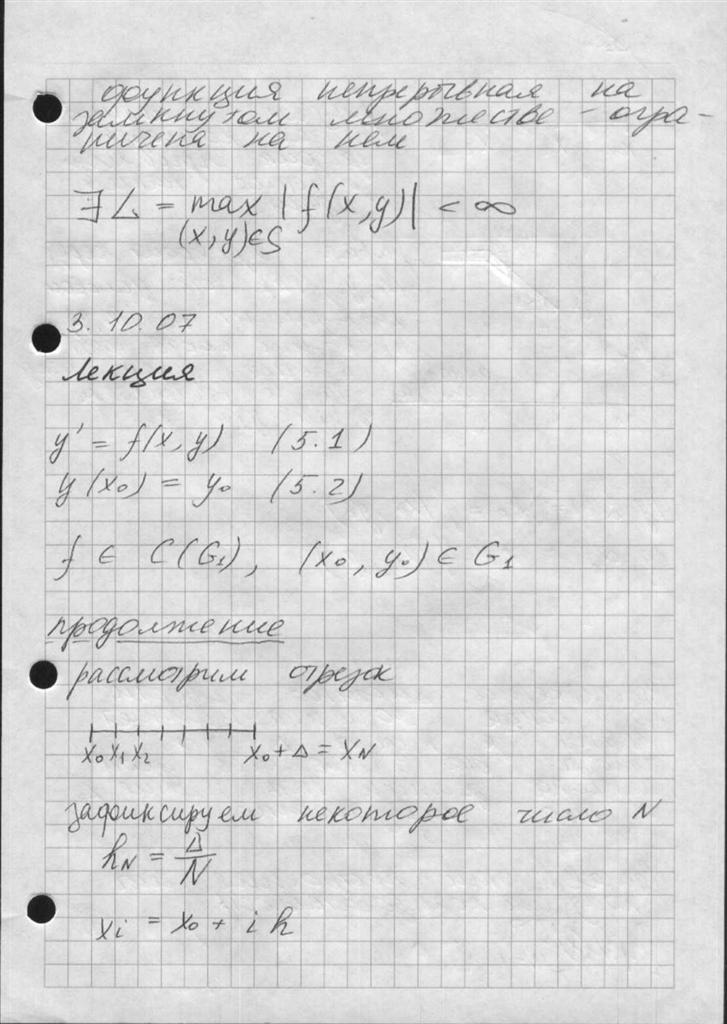 функция непрерывная на
замкнутом множестве - огра-
ничена на нем
∃ L = max |f(x,y)| < ∞
(x,y)∈S
3.10.07
Лекция
y' = f(x,y) (5.1)
y(x₀) = y₀ (5.2)
f ∈ C(G₁), (x₀, y₀) ∈ G₁
продолжение
рассмотрим отрезок
x₀ x₁ x₂ x₀ + Δ = x_N
зафиксируем некоторое число N
h_N = Δ/N
x_i = x₀ + i h